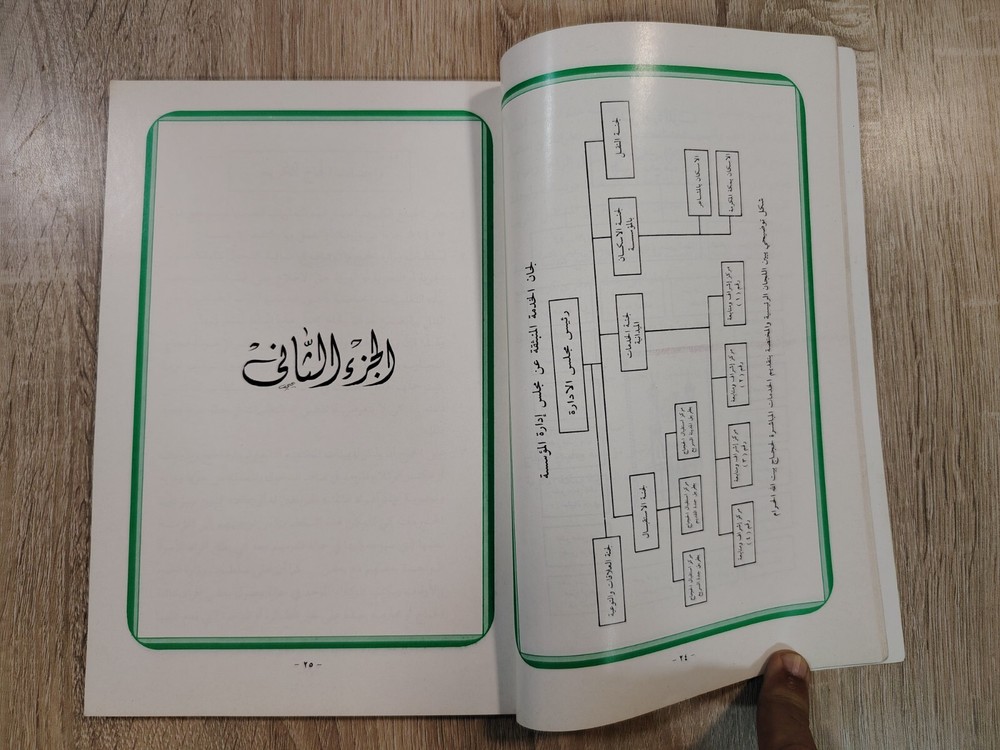 لجان الخدمة المنبثقة عن مجلس إدارة المؤسسة
رئيس مجلس الادارة
لجنة النقل
لجنة الاسكان
بالمؤسسة
لجنة الخدمات
الميدانية
لجنة الاستقبال
لجنة العلاقات والتوعية
الاسكان بالمشاعر
الاسكان بمكة المكرمة
مركز إشراف ومتابعة
رقم (١)
مركز إشراف ومتابعة
رقم (٢)
مركز إشراف ومتابعة
رقم (٣)
مركز إشراف ومتابعة
رقم (٤)
مركز استقبال الحجاج
بطريق المدينة السريع
مركز استقبال الحجاج
بطريق جدة القديم
مركز استقبال الحجاج
بطريق جدة السريع
شكل توضيحي يبين اللجان الرئيسية والمختصة بتقديم الخدمات المباشرة لحجاج بيت الله الحرام
- ٢٤ -
الجزء الثاني
- ٢٥ -